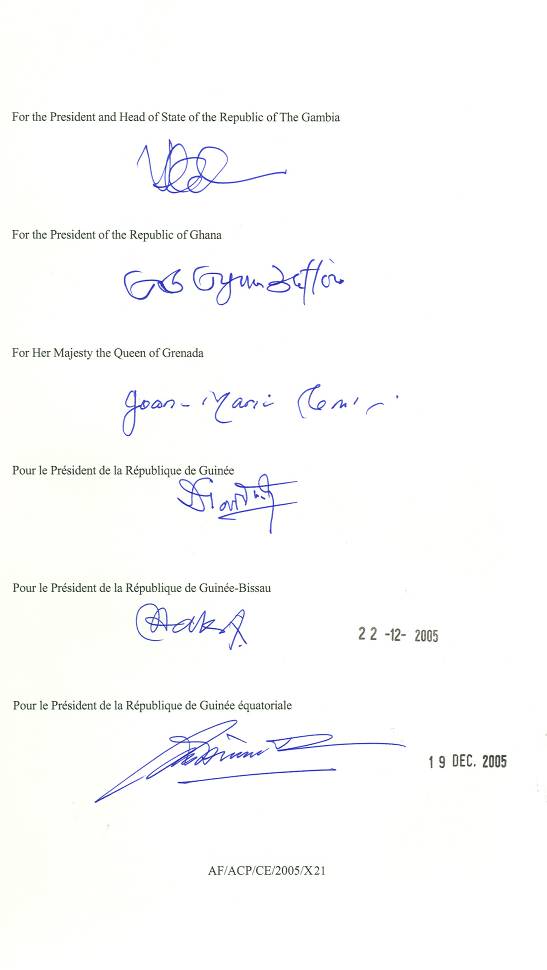 For the President and Head of State of the Republic of The Gambia
For the President of the Republic of Ghana
For Her Majesty the Queen of Grenada
Joan-Marie
Pour le Président de la République de Guinée
Pour le Président de la République de Guinée-Bissau
22 -12- 2005
Pour le Président de la République de Guinée équatoriale
19 DEC. 2005
AF/ACP/CE/2005/X21